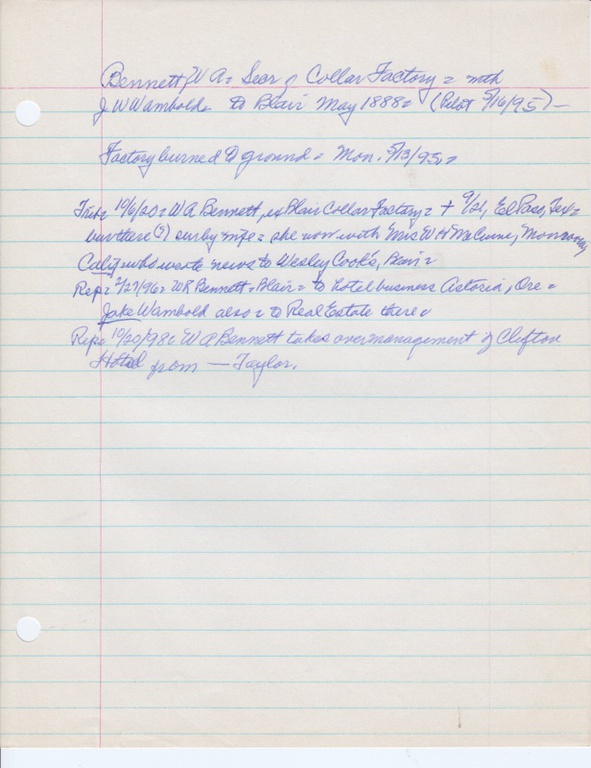 Bennett, W A = Secr of Collar Factory = with
J W Wambold = to Blair May 1888 = (Pilot 5/16/95) —
Factory burned to ground = Mon. 5/13/95 =
Trib = 10/6/20 = W A Bennett, ex Blair Collar Factory = + 9/21, El Paso, Tex =
bur there (?) sur by wife = she now with Mrs W H McCune, Monrovia,
Calif, who wrote news to Wesley Cook's, Blair =
Rep = 2/27/96 = W R Bennett = Blair = to hotel business Astoria, Ore =
Jake Wambold also = to Real Estate there =
Rep = 10/20/98 = W A Bennett takes over management of Clifton
Hotel from — Taylor.